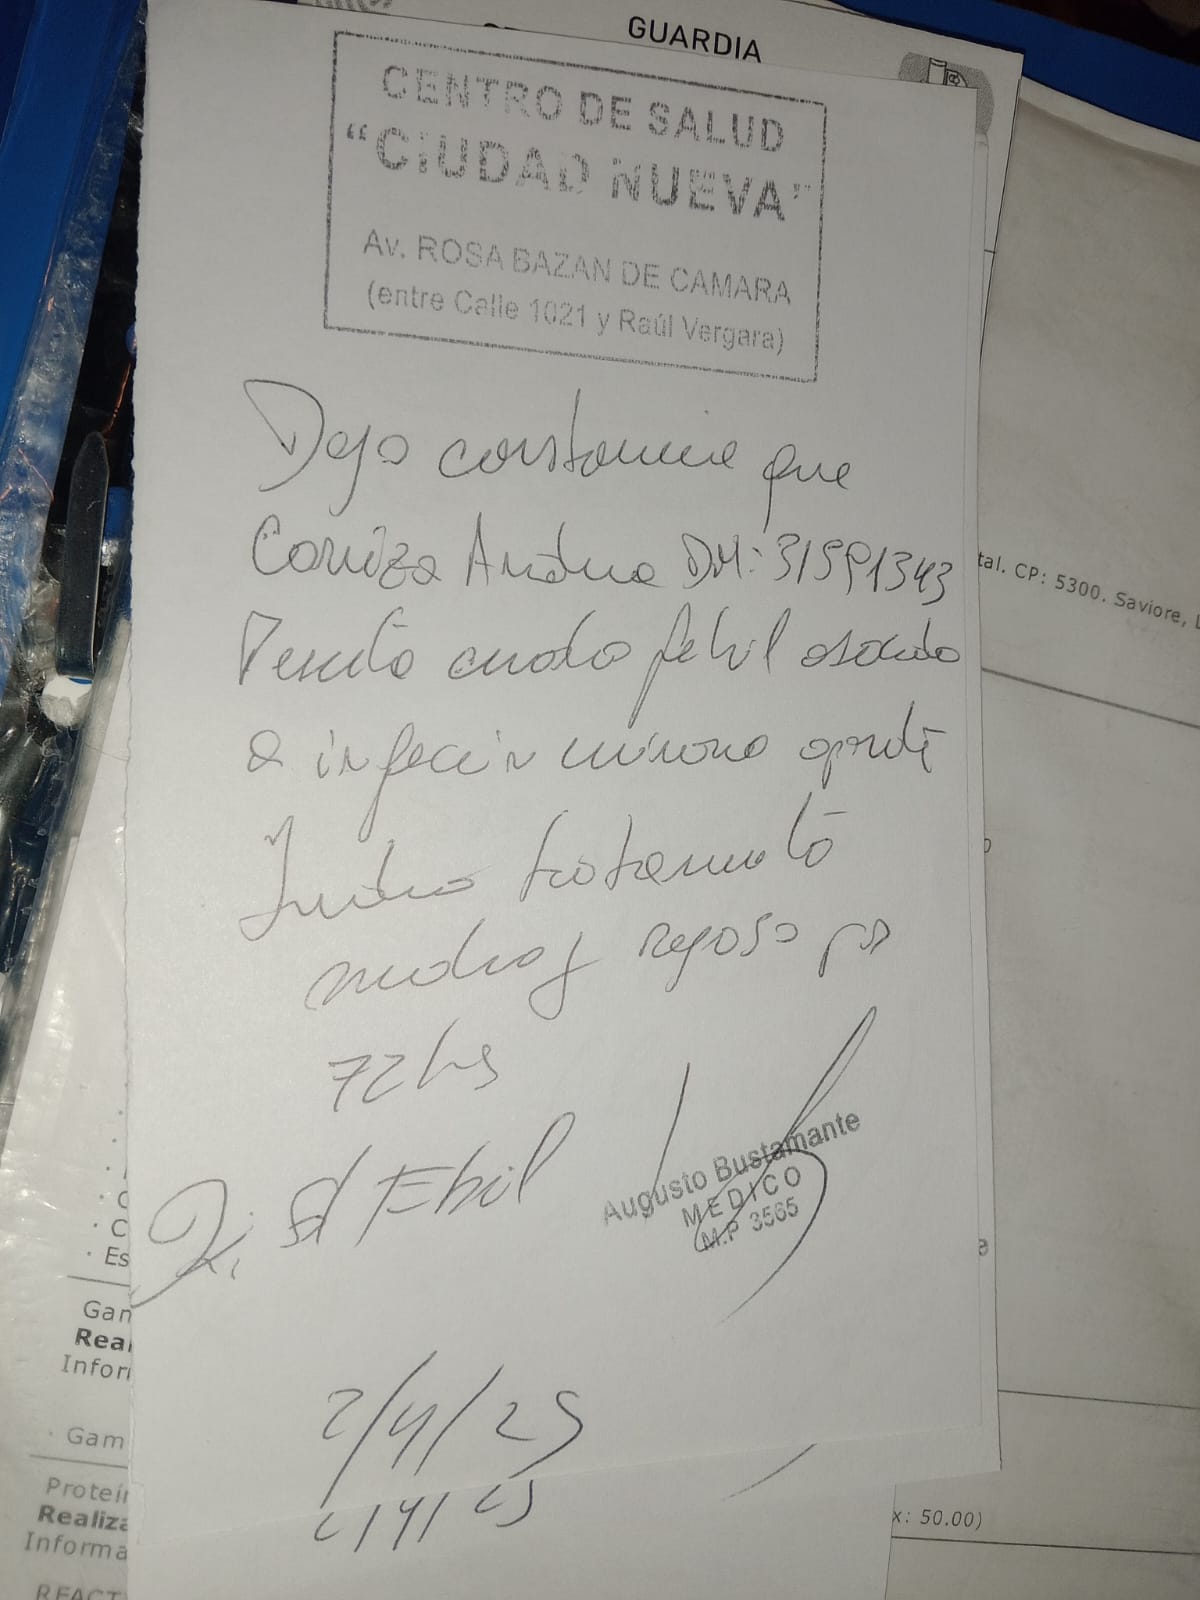 GUARDIA
CENTRO DE SALUD
"CIUDAD NUEVA"
Av. ROSA BAZAN DE CAMARA
(entre Calle 1021 y Raúl Vergara)
Dejo constancia que
Andrea DNI: 31591343
Presentó cuadro febril asociado
a infección
Indico tratamiento
medico y reposo por
72hs
Augusto Bustamante
MEDICO
M.P 3565
2/4/25
tal. CP: 5300. Saviore, L
Es
Gam
Rea
Infor
Gam
Proteín
Realiza
Informa
REACT
x: 50.00)